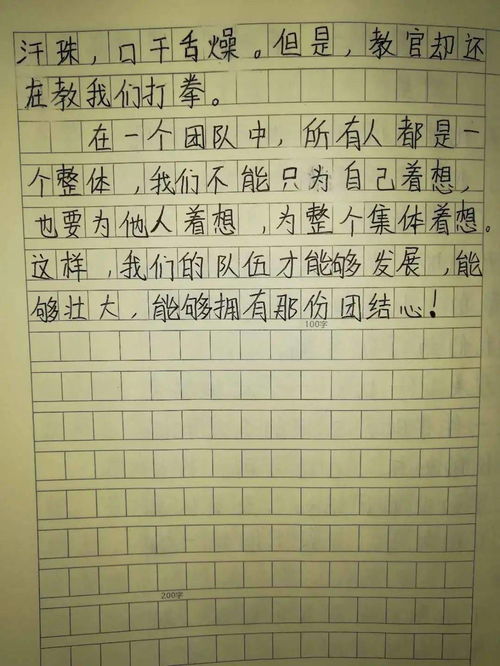 汗珠，口干舌燥。但是，教官却还
在教我们打拳。
在一个团队中，所有人都是一
个整体，我们不能只为自己着想，
也要为他人着想，为整个集体着想。
这样，我们的队伍才能够发展，能
够壮大，能够拥有那份团结心！
100字
200字